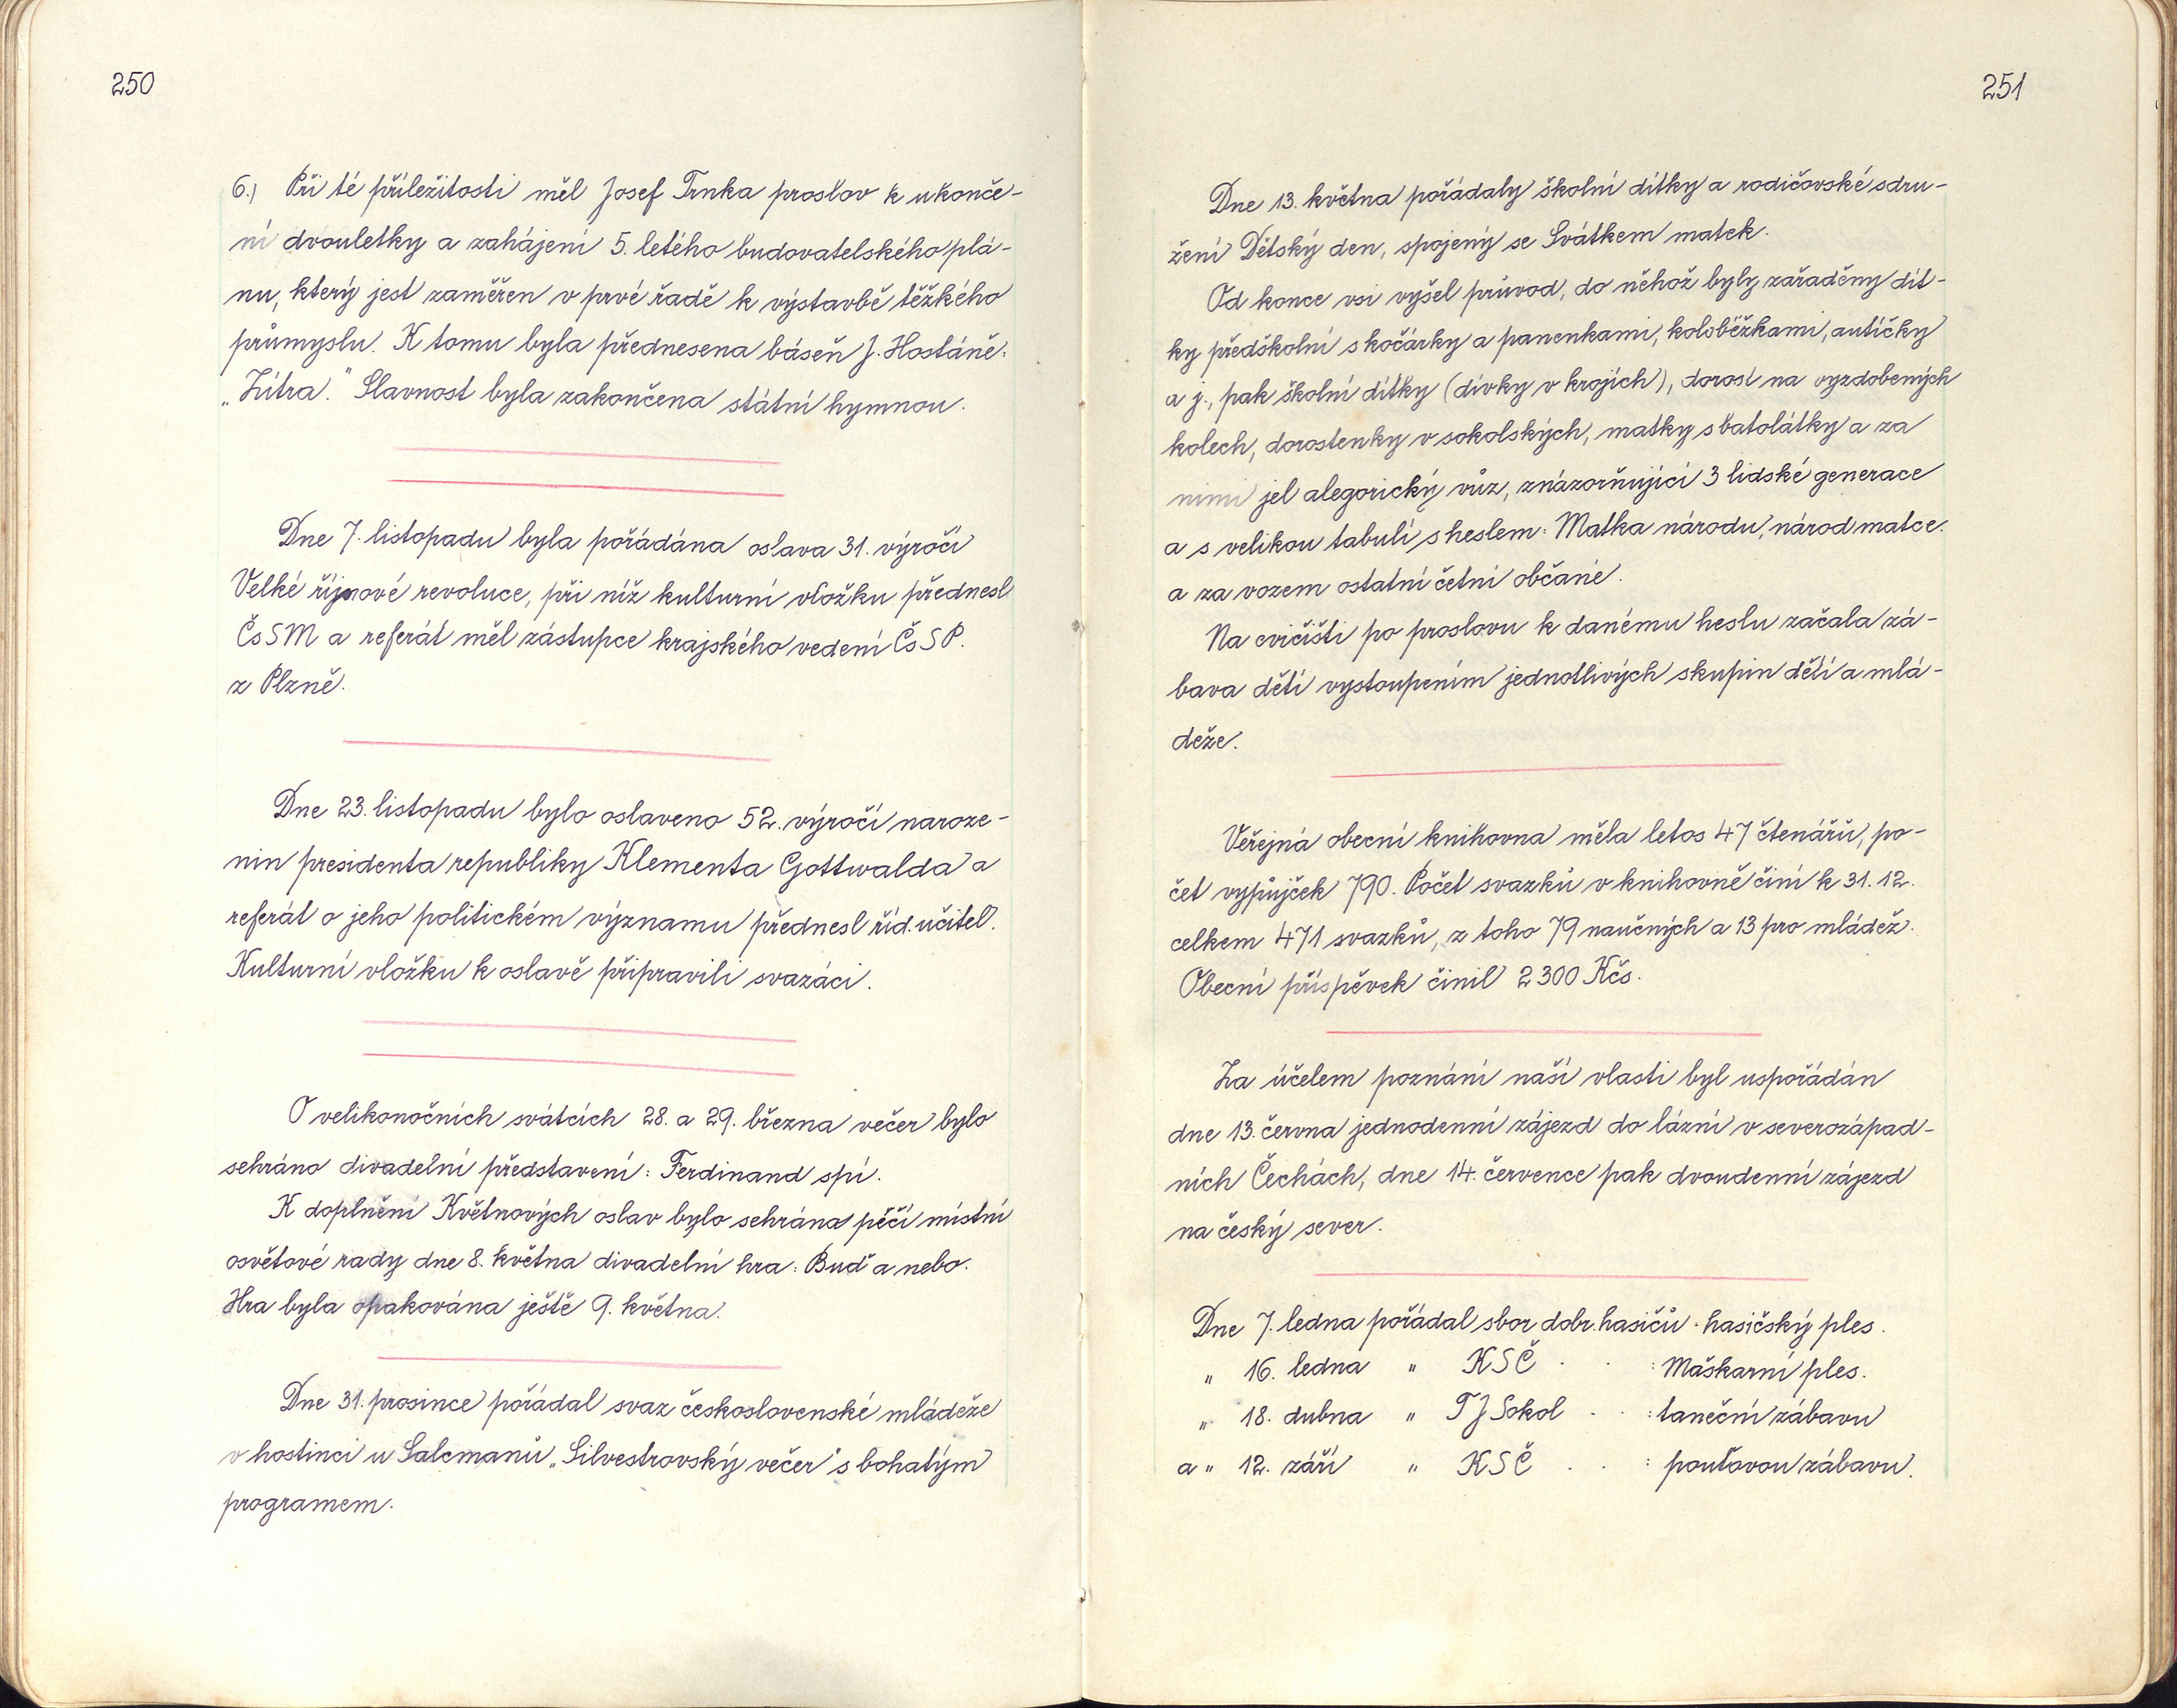 250
6.) Při té příležitosti měl Josef Trnka proslov k ukonče-
ní dvouletky a zahájení 5. letého budovatelského plá-
nu, který jest zaměřen v prvé řadě k výstavbě těžkého
průmyslu. K tomu byla přednesena báseň J. Hostáně:
„Zítra." Slavnost byla zakončena státní hymnou.
Dne 7. listopadu byla pořádána oslava 31. výročí
Velké říjnové revoluce, při níž kulturní vložku přednesl
ČsSM a referát měl zástupce krajského vedení ČsSP.
z Plzně.
Dne 23. listopadu bylo oslaveno 52. výročí naroze-
nin presidenta republiky Klementa Gottwalda a
referát o jeho politickém významu přednesl říd. učitel.
Kulturní vložku k oslavě připravili svazáci.
O velikonočních svátcích 28. a 29. března večer bylo
sehráno divadelní představení: Ferdinand spí.
K doplnění Květnových oslav bylo sehrána péčí místní
osvětové rady dne 8. května divadelní hra: Buď a nebo.
Hra byla opakována ještě 9. května.
Dne 31. prosince pořádal svaz československé mládeže
v hostinci u Salcmanů „Silvestrovský večer" s bohatým
programem.
251
Dne 13. května pořádaly školní dítky a rodičovské sdru-
žení Dětský den, spojený se Svátkem matek.
Od konce vsi vyšel průvod, do něhož byly zařaděny dít-
ky předškolní s kočárky a panenkami, koloběžkami, autíčky
a j., pak školní dítky (dívky v krojích), dorost na vyzdobených
kolech, dorostenky v sokolských, matky s batolátky a za
nimi jel alegorický vůz, znázorňující 3 lidské generace
a s velikou tabulí s heslem: Matka národu, národ matce.
a za vozem ostatní četní občané.
Na cvičišti po proslovu k danému heslu začala zá-
bava dětí vystoupením jednotlivých skupin dětí a mlá-
deže.
Veřejná obecní knihovna měla letos 47 čtenářů, po-
čet vypůjček 790. Počet svazků v knihovně činí k 31. 12.
celkem 471 svazků, z toho 79 naučných a 13 pro mládež.
Obecní příspěvek činil 2300 Kčs.
Za účelem poznání naší vlasti byl uspořádán
dne 13. června jednodenní zájezd do lázní v severozápad-
ních Čechách, dne 14. července pak dvoudenní zájezd
na český sever.
Dne 7. ledna pořádal sbor dobr. hasičů . hasičský ples.
„ 16. ledna „ KSČ . . : Maškarní ples.
„ 18. dubna „ TJ Sokol . . : taneční zábavu
a „ 12. září „ KSČ . . : pouťovou zábavu.